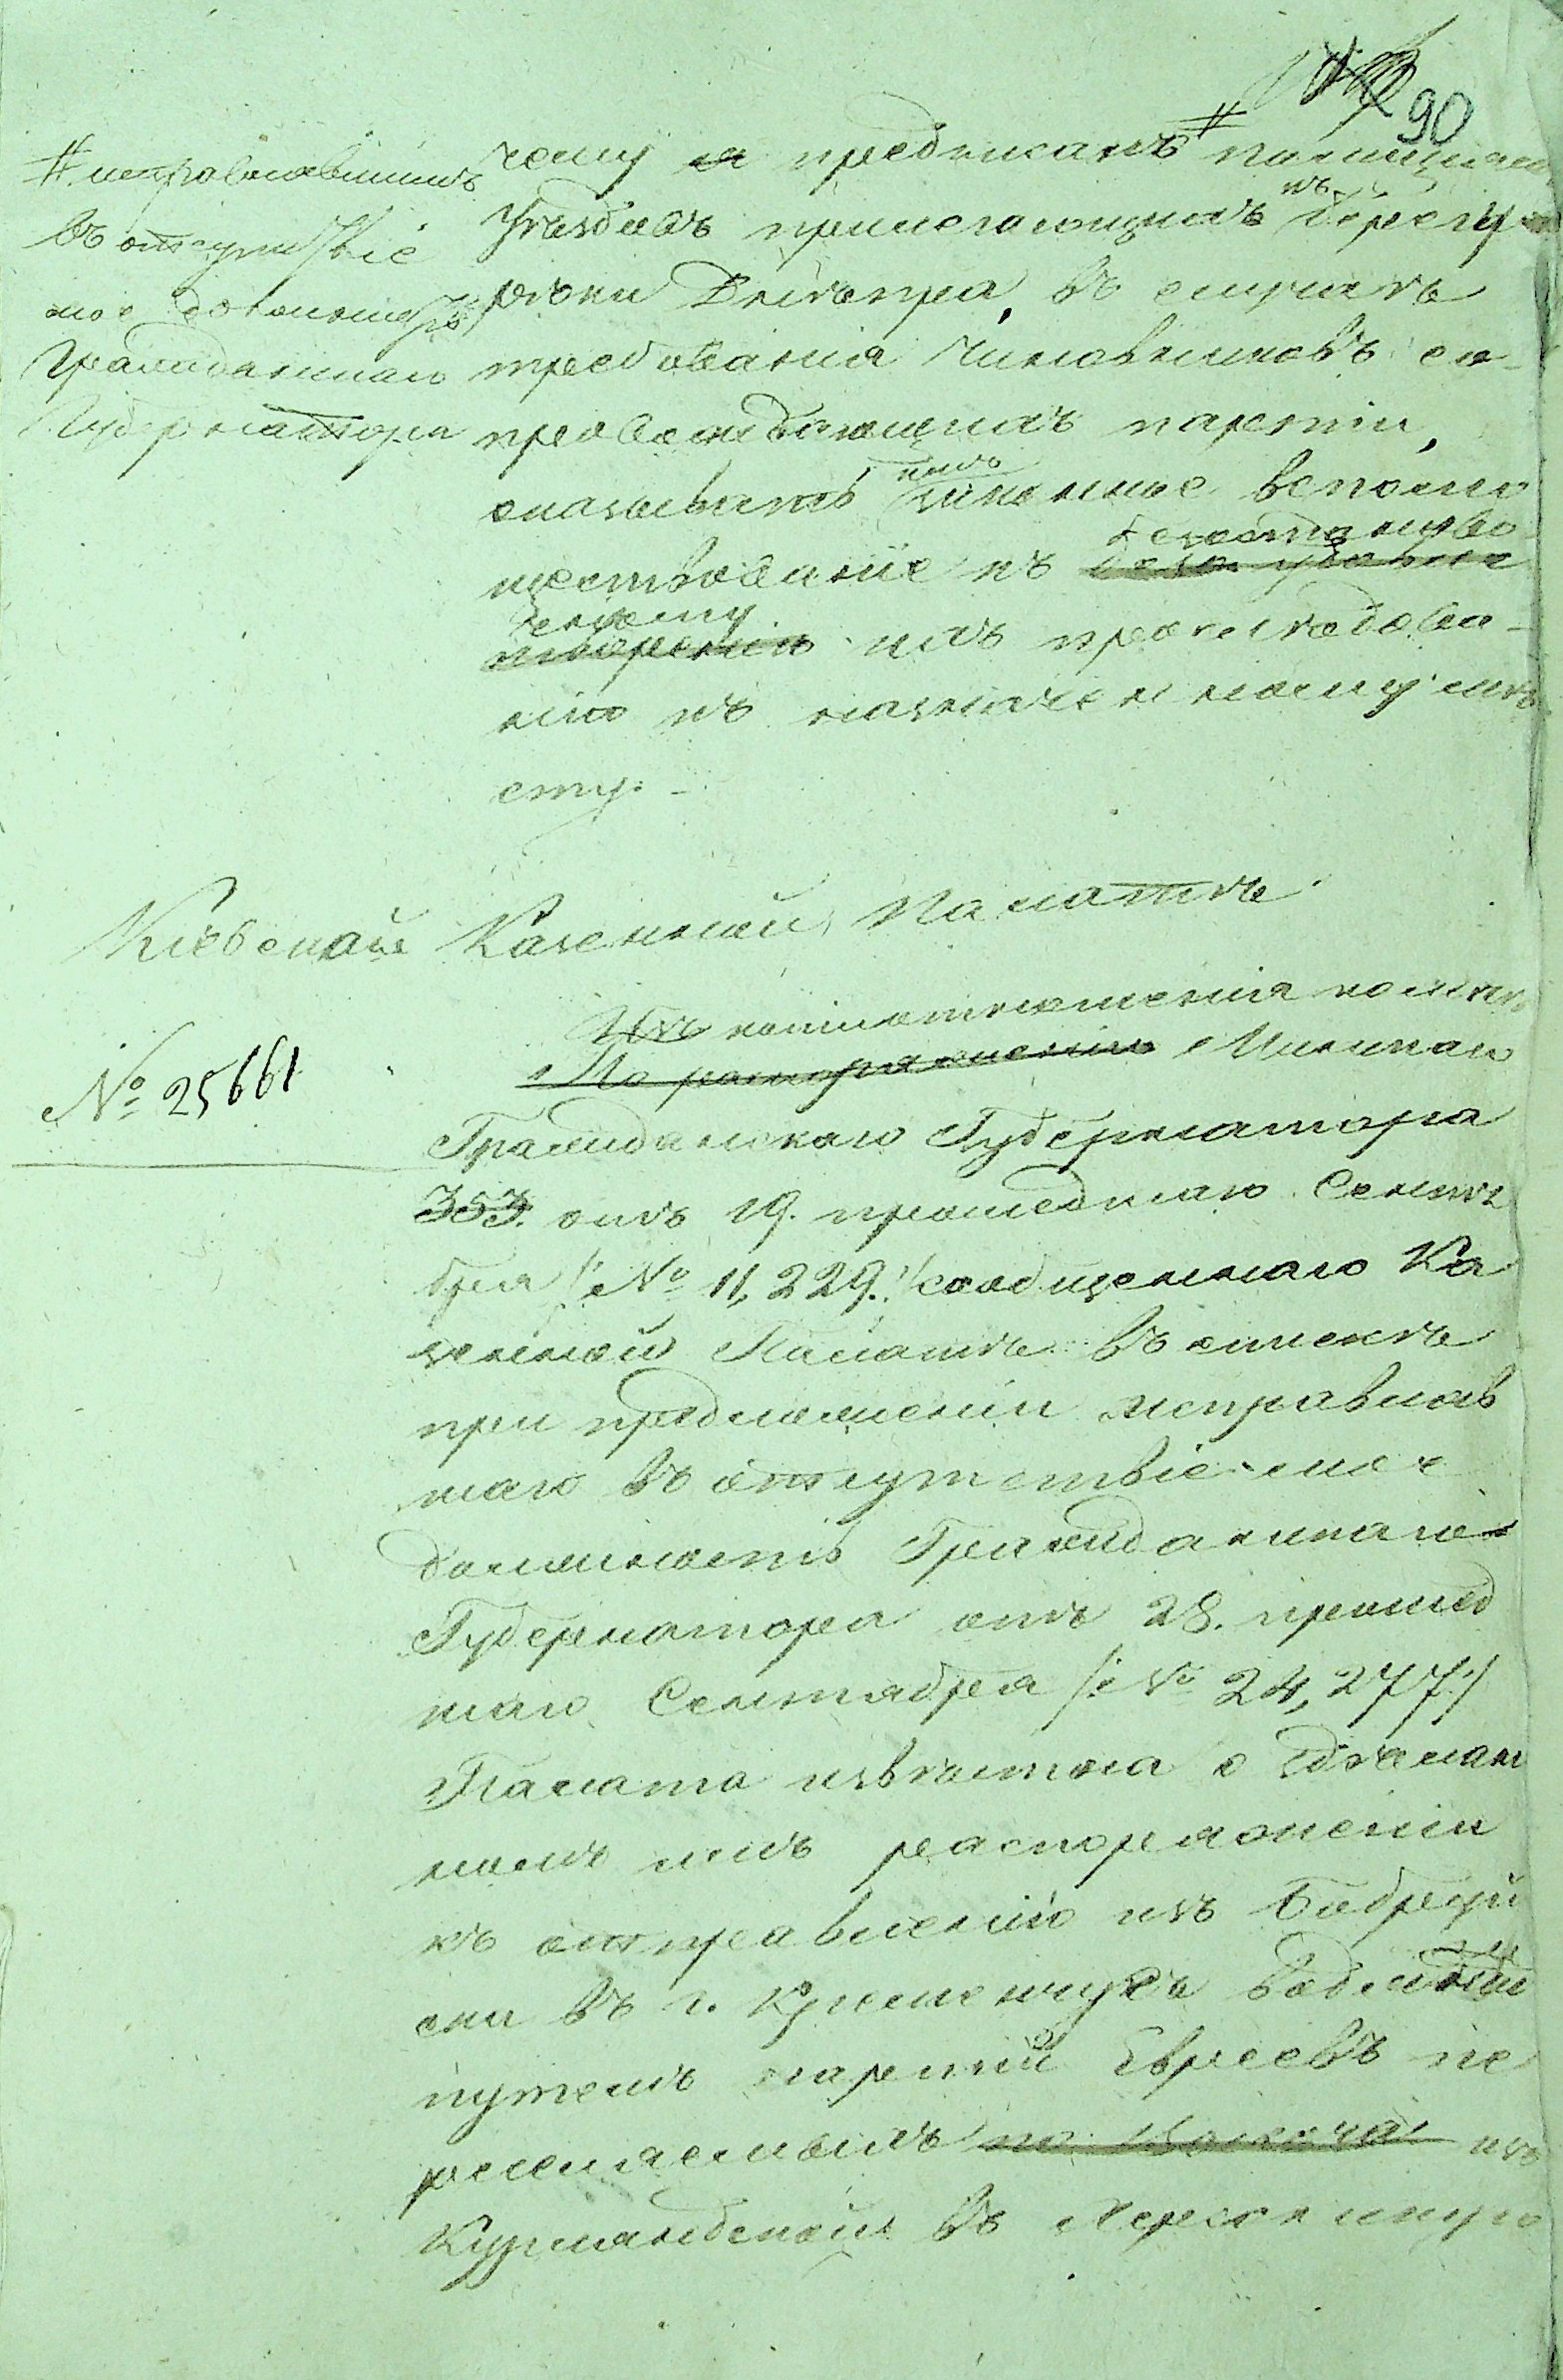 90
# исправлявшимъ
въ отсутствіе
мое должность
Гражданскаго
Губернатора
чему я предписалъ # полиціямъ
Уѣздовъ прилегающихъ къ берегу
рѣки Днѣпра, въ случаѣ
требованія Чиновниковъ со-
провождающихъ партіи,
оказывать имъ законное вспомо
ществованіе къ безостановоч
ному ихъ прослѣдова-
нію къ назначенному мѣ
сту. -
Кіевской Казенной Палатѣ
Изъ копіи отношенія ко мнѣ
По распоряженію Минскаго
Гражданскаго Губернатора
353. отъ 19. прошедшаго Сентя
бря /: № 11,229. :/ сообщеннаго Ка
зенной Палатѣ въ спискѣ
при предложеніи исправляв
шаго въ отсутствіе мое
должность Гражданскаго
Губернатора отъ 28. прошед
шаго Сентября /: № 24,277 :/
Палата извѣстна о сдѣлан
номъ имъ распоряженіи
къ отправленію изъ Бобруй
ска въ г. Кременчугъ водянымъ
путемъ партій Евреевъ пе
реселяемыхъ изъ
Курляндской въ Херсонскую
№ 25661